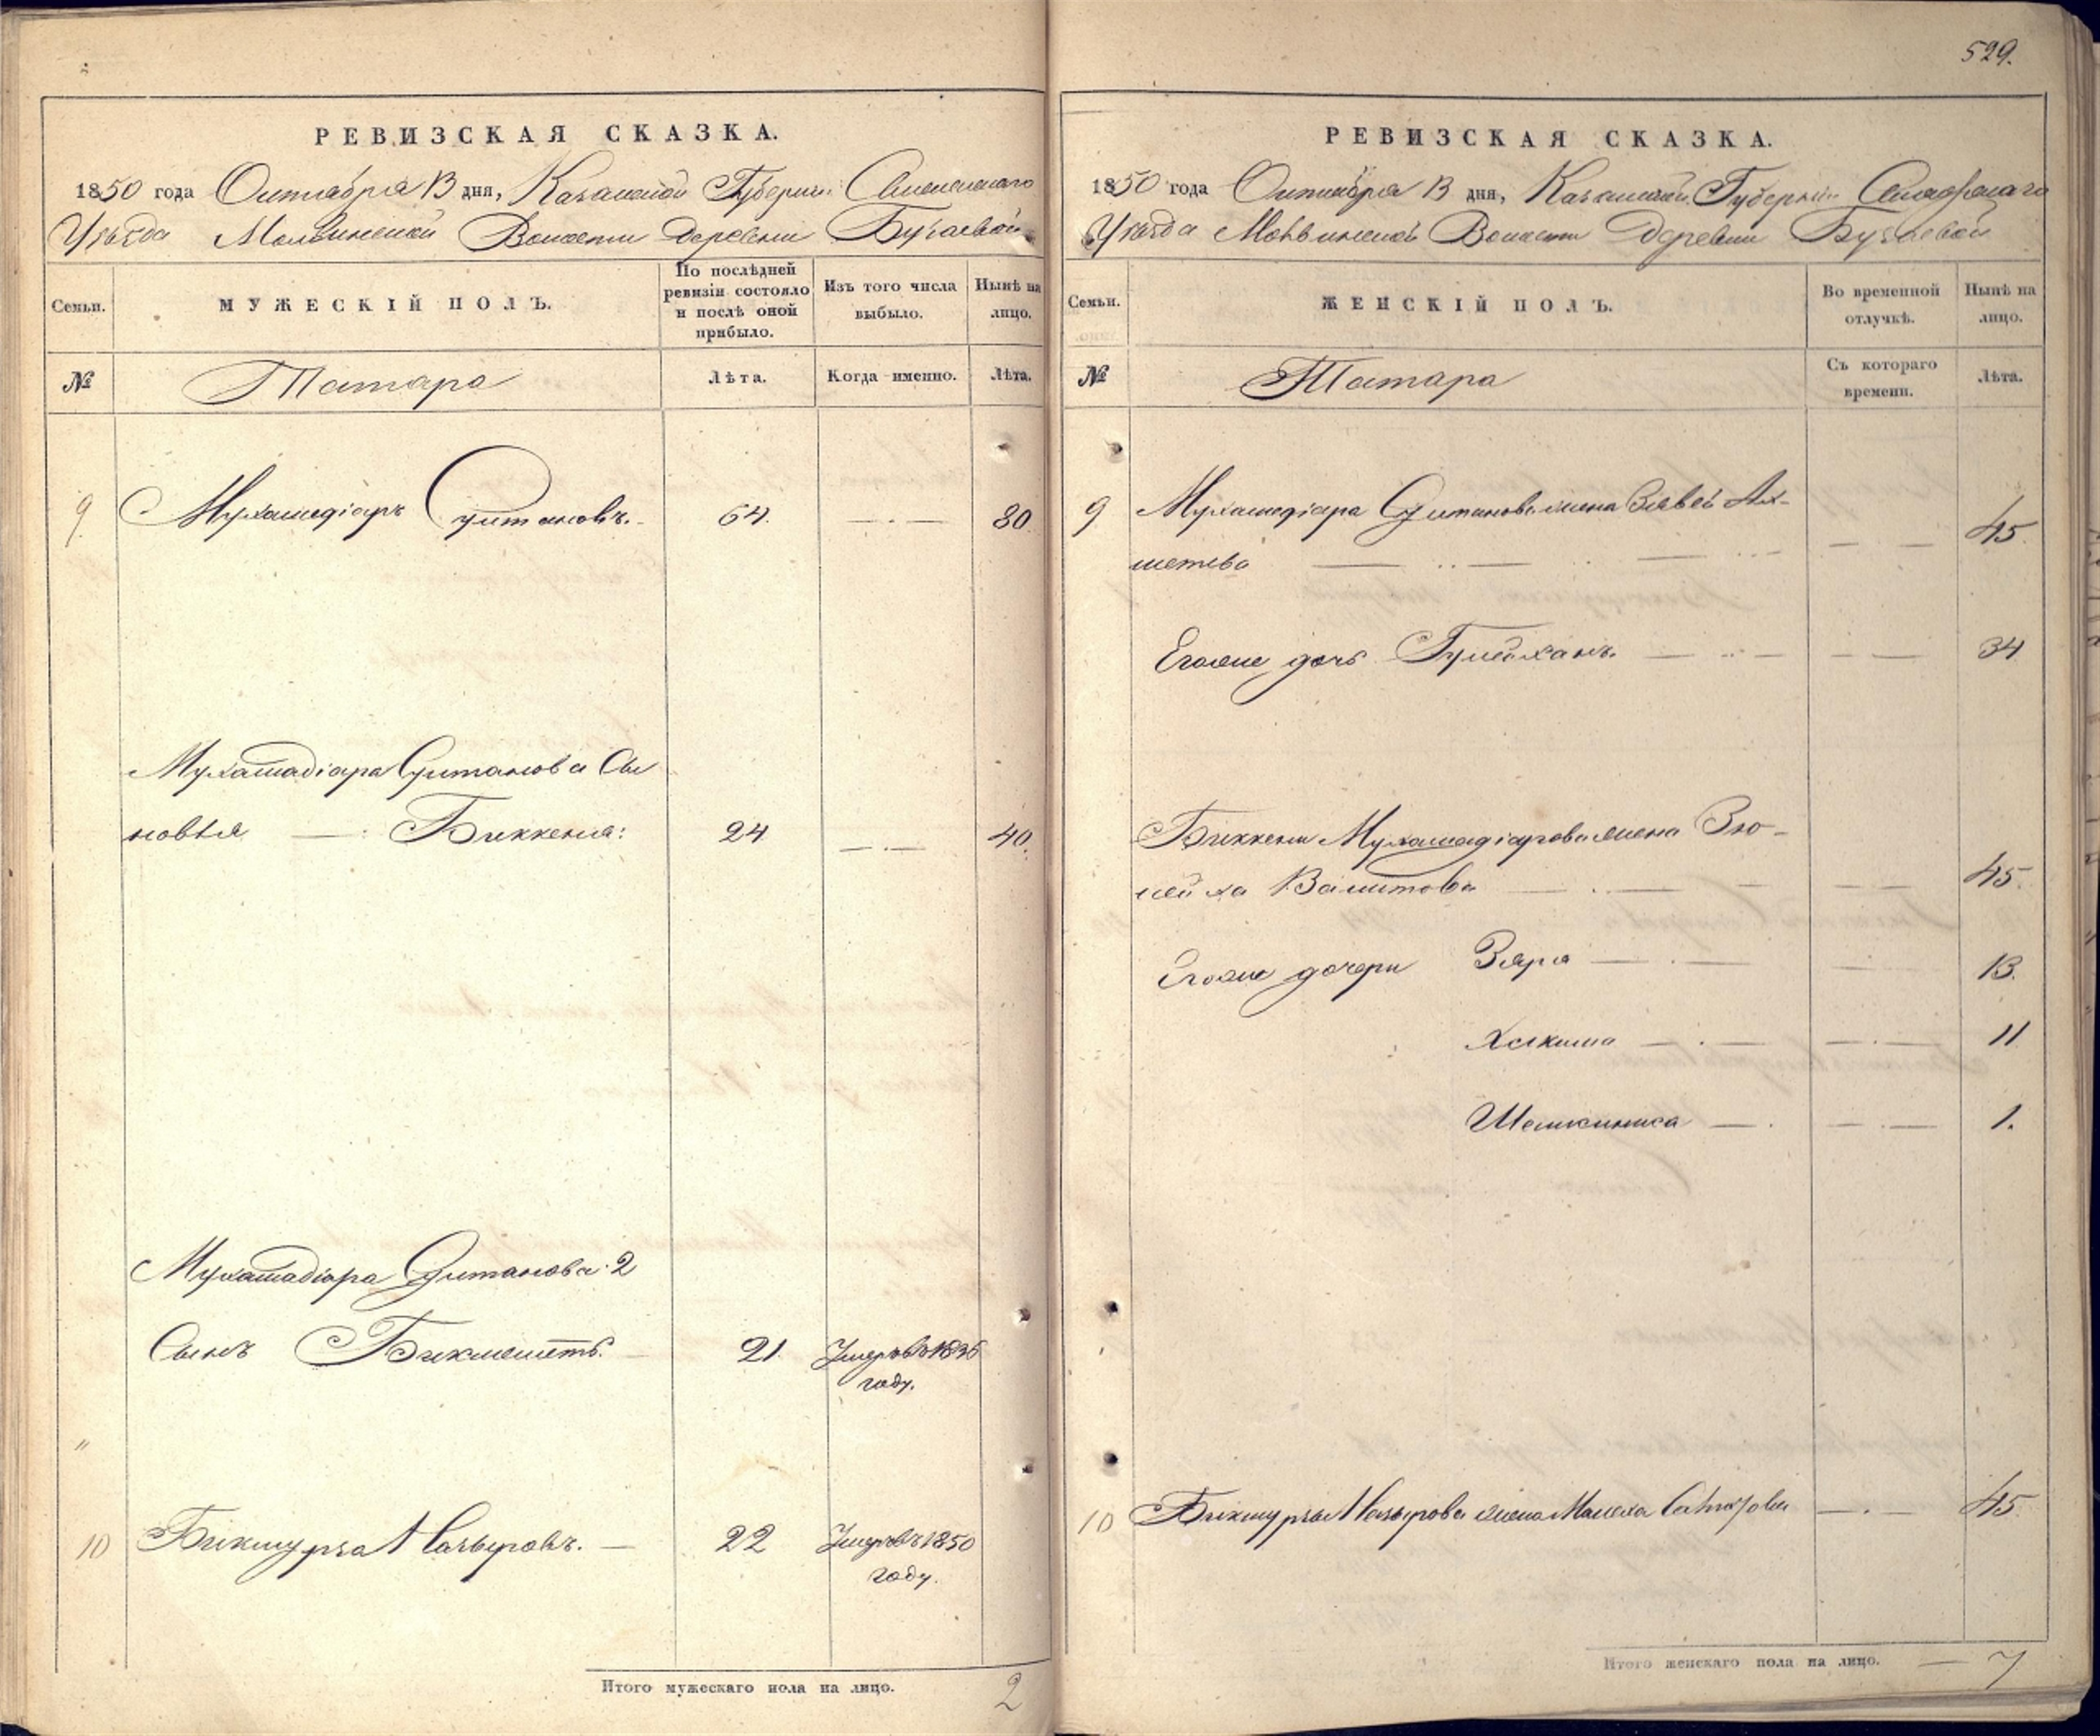 РЕВИЗСКАЯ СКАЗКА.
1850 года Октября 13 дня, Казанской Губернии
Уѣзда Волости Деревни
Семьи.
МУЖЕСКІЙ ПОЛЪ.
По послѣдней ревизіи состояло и послѣ оной прибыло.
Изъ того числа выбыло.
Нынѣ на лицо.
№
Татара
Лѣта.
Когда именно.
Лѣта.
9. Мухамедіаръ Султановъ. 64. 80
Мухамадіара Султанова Сы
новья Биккеня: 24 40.
Мухамадіара Султанова 2
Сынъ Бикмеметъ. 21. Умеръ въ 1836
году.
"
10 Бикмурза Назыровъ. 22 Умеръ въ 1850
году.
Итого мужескаго пола на лицо. 2
529.
РЕВИЗСКАЯ СКАЗКА.
1850 года Октября 13 дня, Казанской Губерніи
Уѣзда Волости Деревни
Семьи.
ЖЕНСКІЙ ПОЛЪ.
Во временной отлучкѣ.
Нынѣ на лицо.
№
Татара
Съ котораго времени.
Лѣта.
9 Мухамедіара Султанова жена Ах-
метева 45
Егоже дочь 34
Биккени Мухамедіарова жена Зю-
лейха Валитова 45.
Егоже дочери Зяря 13.
Хакима 11
1.
10 Бикмурзы Назырова жена 45
Итого женскаго пола на лицо. 7